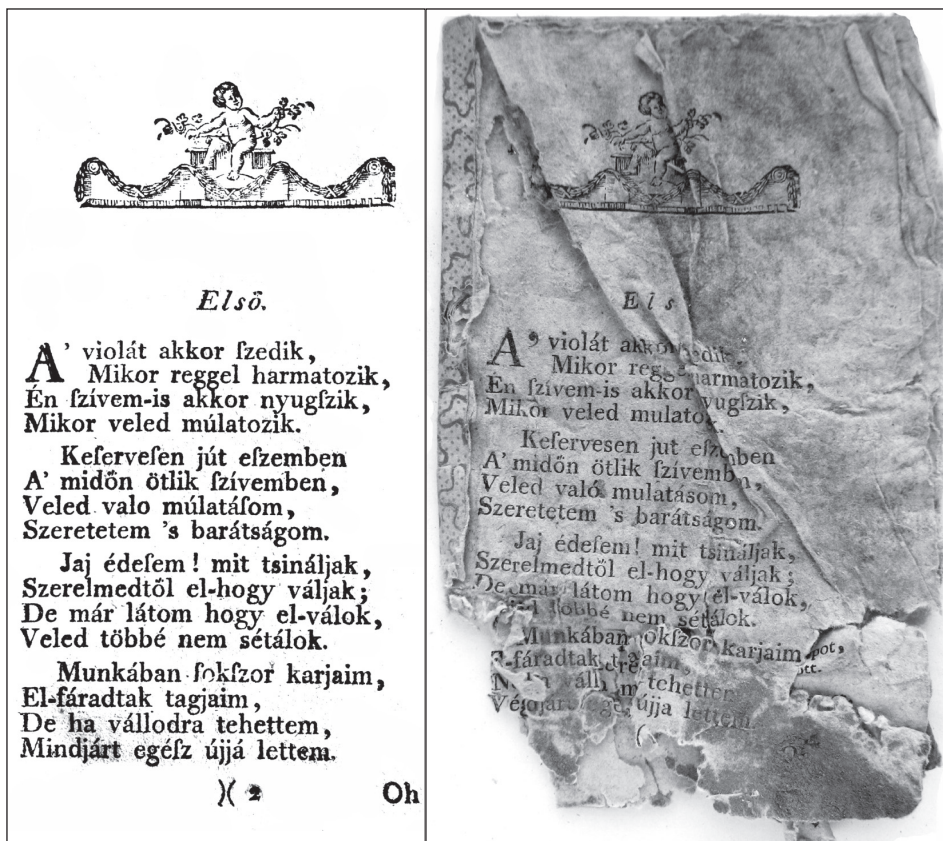 Elsö.
A' violát akkor ſzedik,
Mikor reggel harmatozik,
Én ſzívem-is akkor nyugſzik,
Mikor veled múlatozik.
Keſerveſen jút eſzemben
A' midőn ötlik ſzívemben,
Veled valo múlatáſom,
Szeretetem 's barátságom.
Jaj édeſem! mit tsináljak,
Szerelmedtől el-hogy váljak;
De már látom hogy el-válok,
Veled többé nem sétálok.
Munkában ſokſzor karjaim,
El-fáradtak tagjaim,
De ha vállodra tehettem,
Mindjárt egéſz újjá lettem.
)( 2 Oh
Els
A' violát akkor ſzedik,
Mikor regge harmatozik,
Én ſzívem-is akkor nyugſzik,
Mikor veled mulatoz
Keſervesen jut eſzemben
A' midőn ötlik ſzívemben,
Veled való mulatásom,
Szeretetem 's barátságom.
Jaj édeſem! mit tsináljak,
Szerelmedtől el-hogy váljak;
De már látom hogy el-válok,
többé nem sétálok.
Munkában ſokſzor karjaim
fáradtak
tehettem
újja lettem